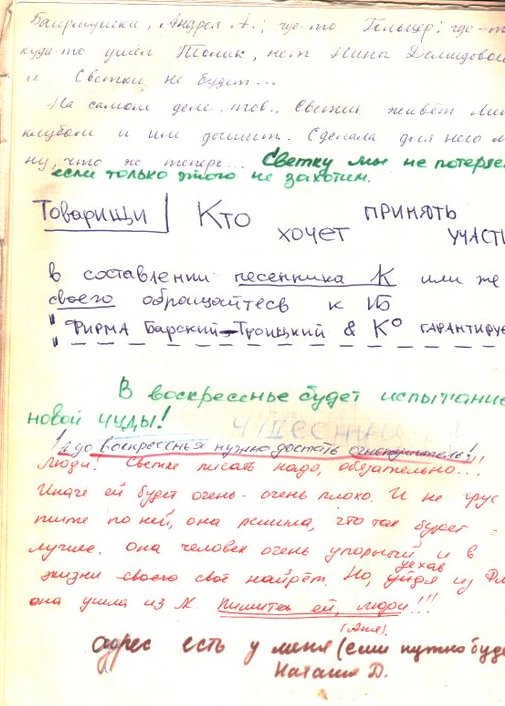 Андрея А.; где-то Гольцер; где-т
куда-то ушёл Толик, нет Нины Демидовой
и Светки не будет...
На самом деле, тов., Светик живёт
клубом и им дышит. Сделала для него м
ну, что же теперь... Светку мы не потеряе
если только этого не захотим.
Товарищи Кто хочет ПРИНЯТЬ УЧАСТИ
в составлении песенника К или же
своего обращайтесь к ИБ
"ФИРМА Барский-Троицкий & К° ГАРАНТИРУЕ
В воскресенье будет испытание
новой чуды!
ЧУДЕСНЫЙ
! До воскресенья нужно достать огнетушитель!
Люди! Светке писать надо, обязательно...!!
Иначе ей будет очень-очень плохо. И не грус
тите по ней, она решила, что так будет
лучше. Она человек очень упорный и в
жизни своего своё найдёт. Но, уйдя уехав из
она ушла из К Пишите ей, люди!!!
(Аня).
адрес есть у меня (если нужно буде
Наташа Д.